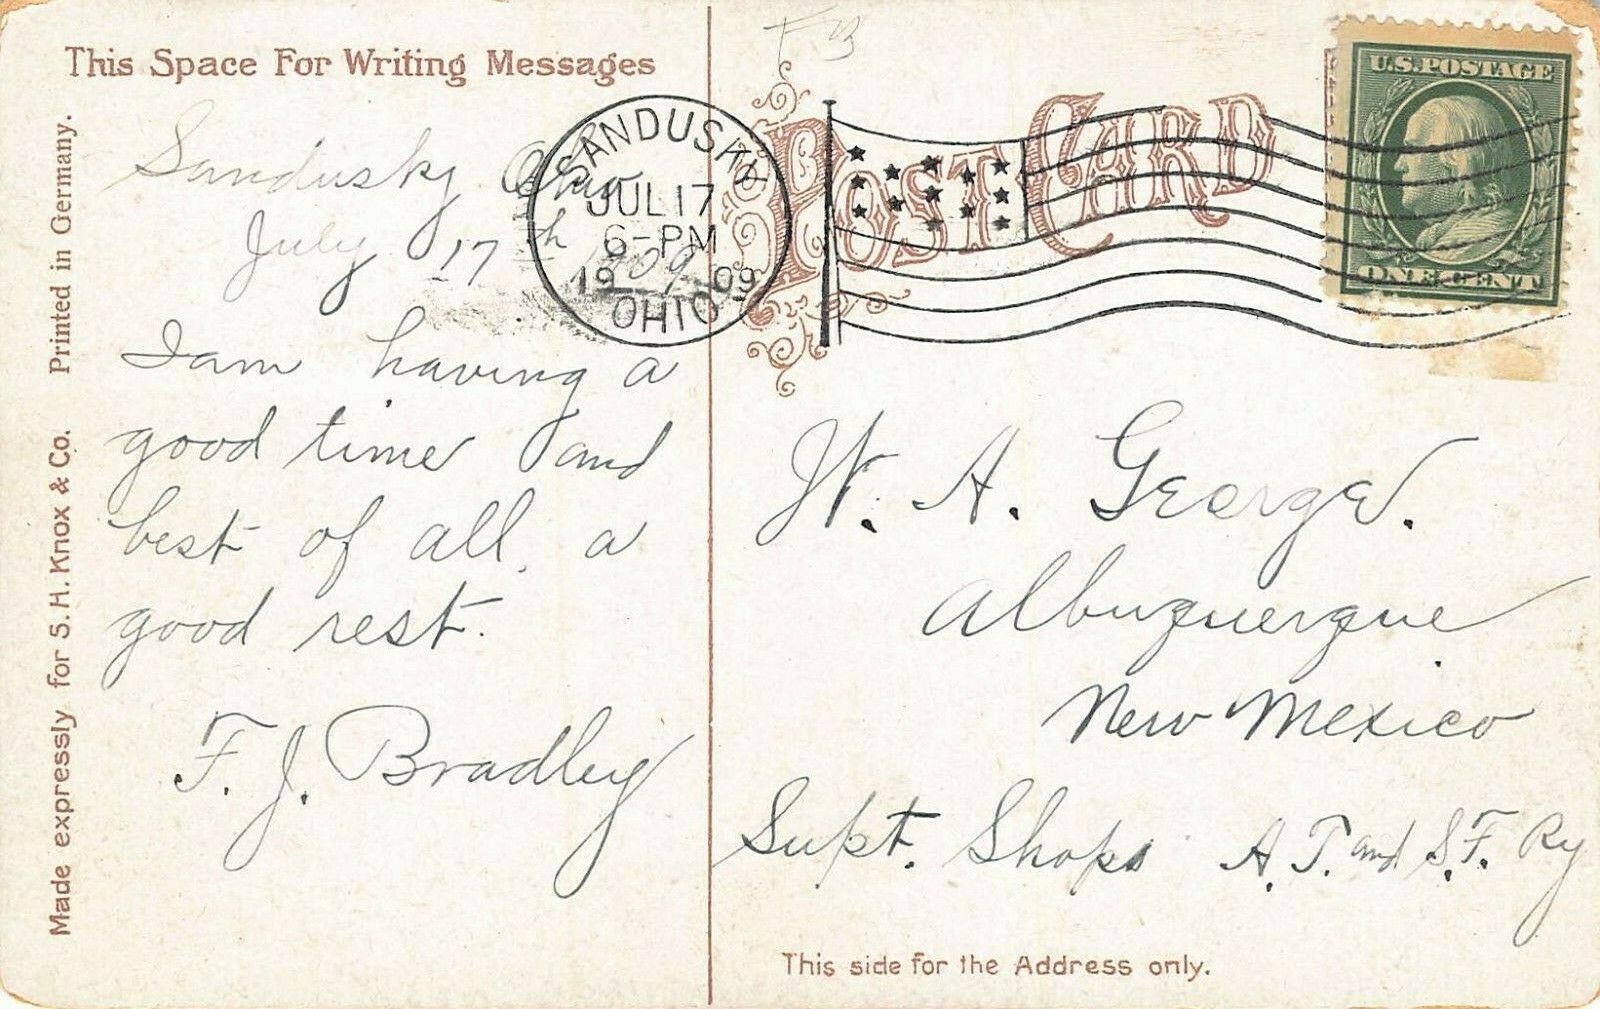 This Space For Writing Messages
Sandusky Ohio
July 17th 1909
I am having a
good time and
best of all, a
good rest.
F. J. Bradley
Made expressly for S. H. Knox & Co. Printed in Germany.
SANDUSKY
JUL 17
6-PM
1909
OHIO
POST CARD
U.S. POSTAGE
ONE CENT
W. A. George.
Albuquerque
New Mexico
Supt. Shops A. T. and S. F. Ry
This side for the Address only.